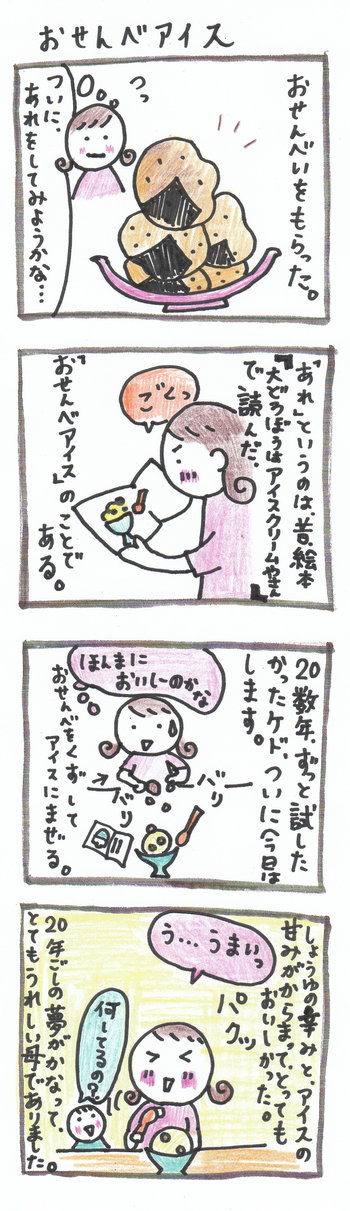 おせんべアイス
おせんべいをもらった。
つっ
ついに、
あれをしてみようかな…
「あれ」というのは、昔、絵本
『大どろぼうはアイスクリームやさん』
で読んだ、
ごくっ
"おせんべアイス"のことで
ある。
20数年、ずっと試した
かったケド、ついに今日は
します。
ほんまに
おいしーのかな
バリ
バリ
おせんべをくずして
アイスにまぜる。
しょうゆの辛みと、アイスの
甘みがからまって、とっても
おいしかった。
う…うまいっ
パクッ
何してるの？
20年ごしの夢がかなって、
とてもうれしい母でありました。